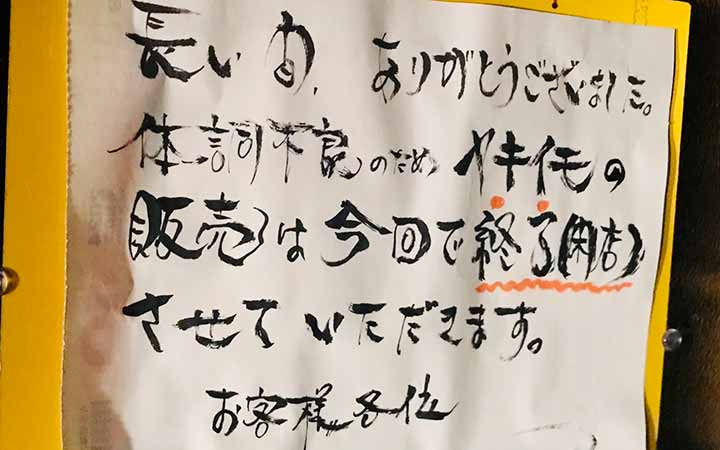 長い間、ありがとうございました。
体調不良のため ヤキイモの
販売は今回で終了(閉店)
させていただきます。
お客様各位